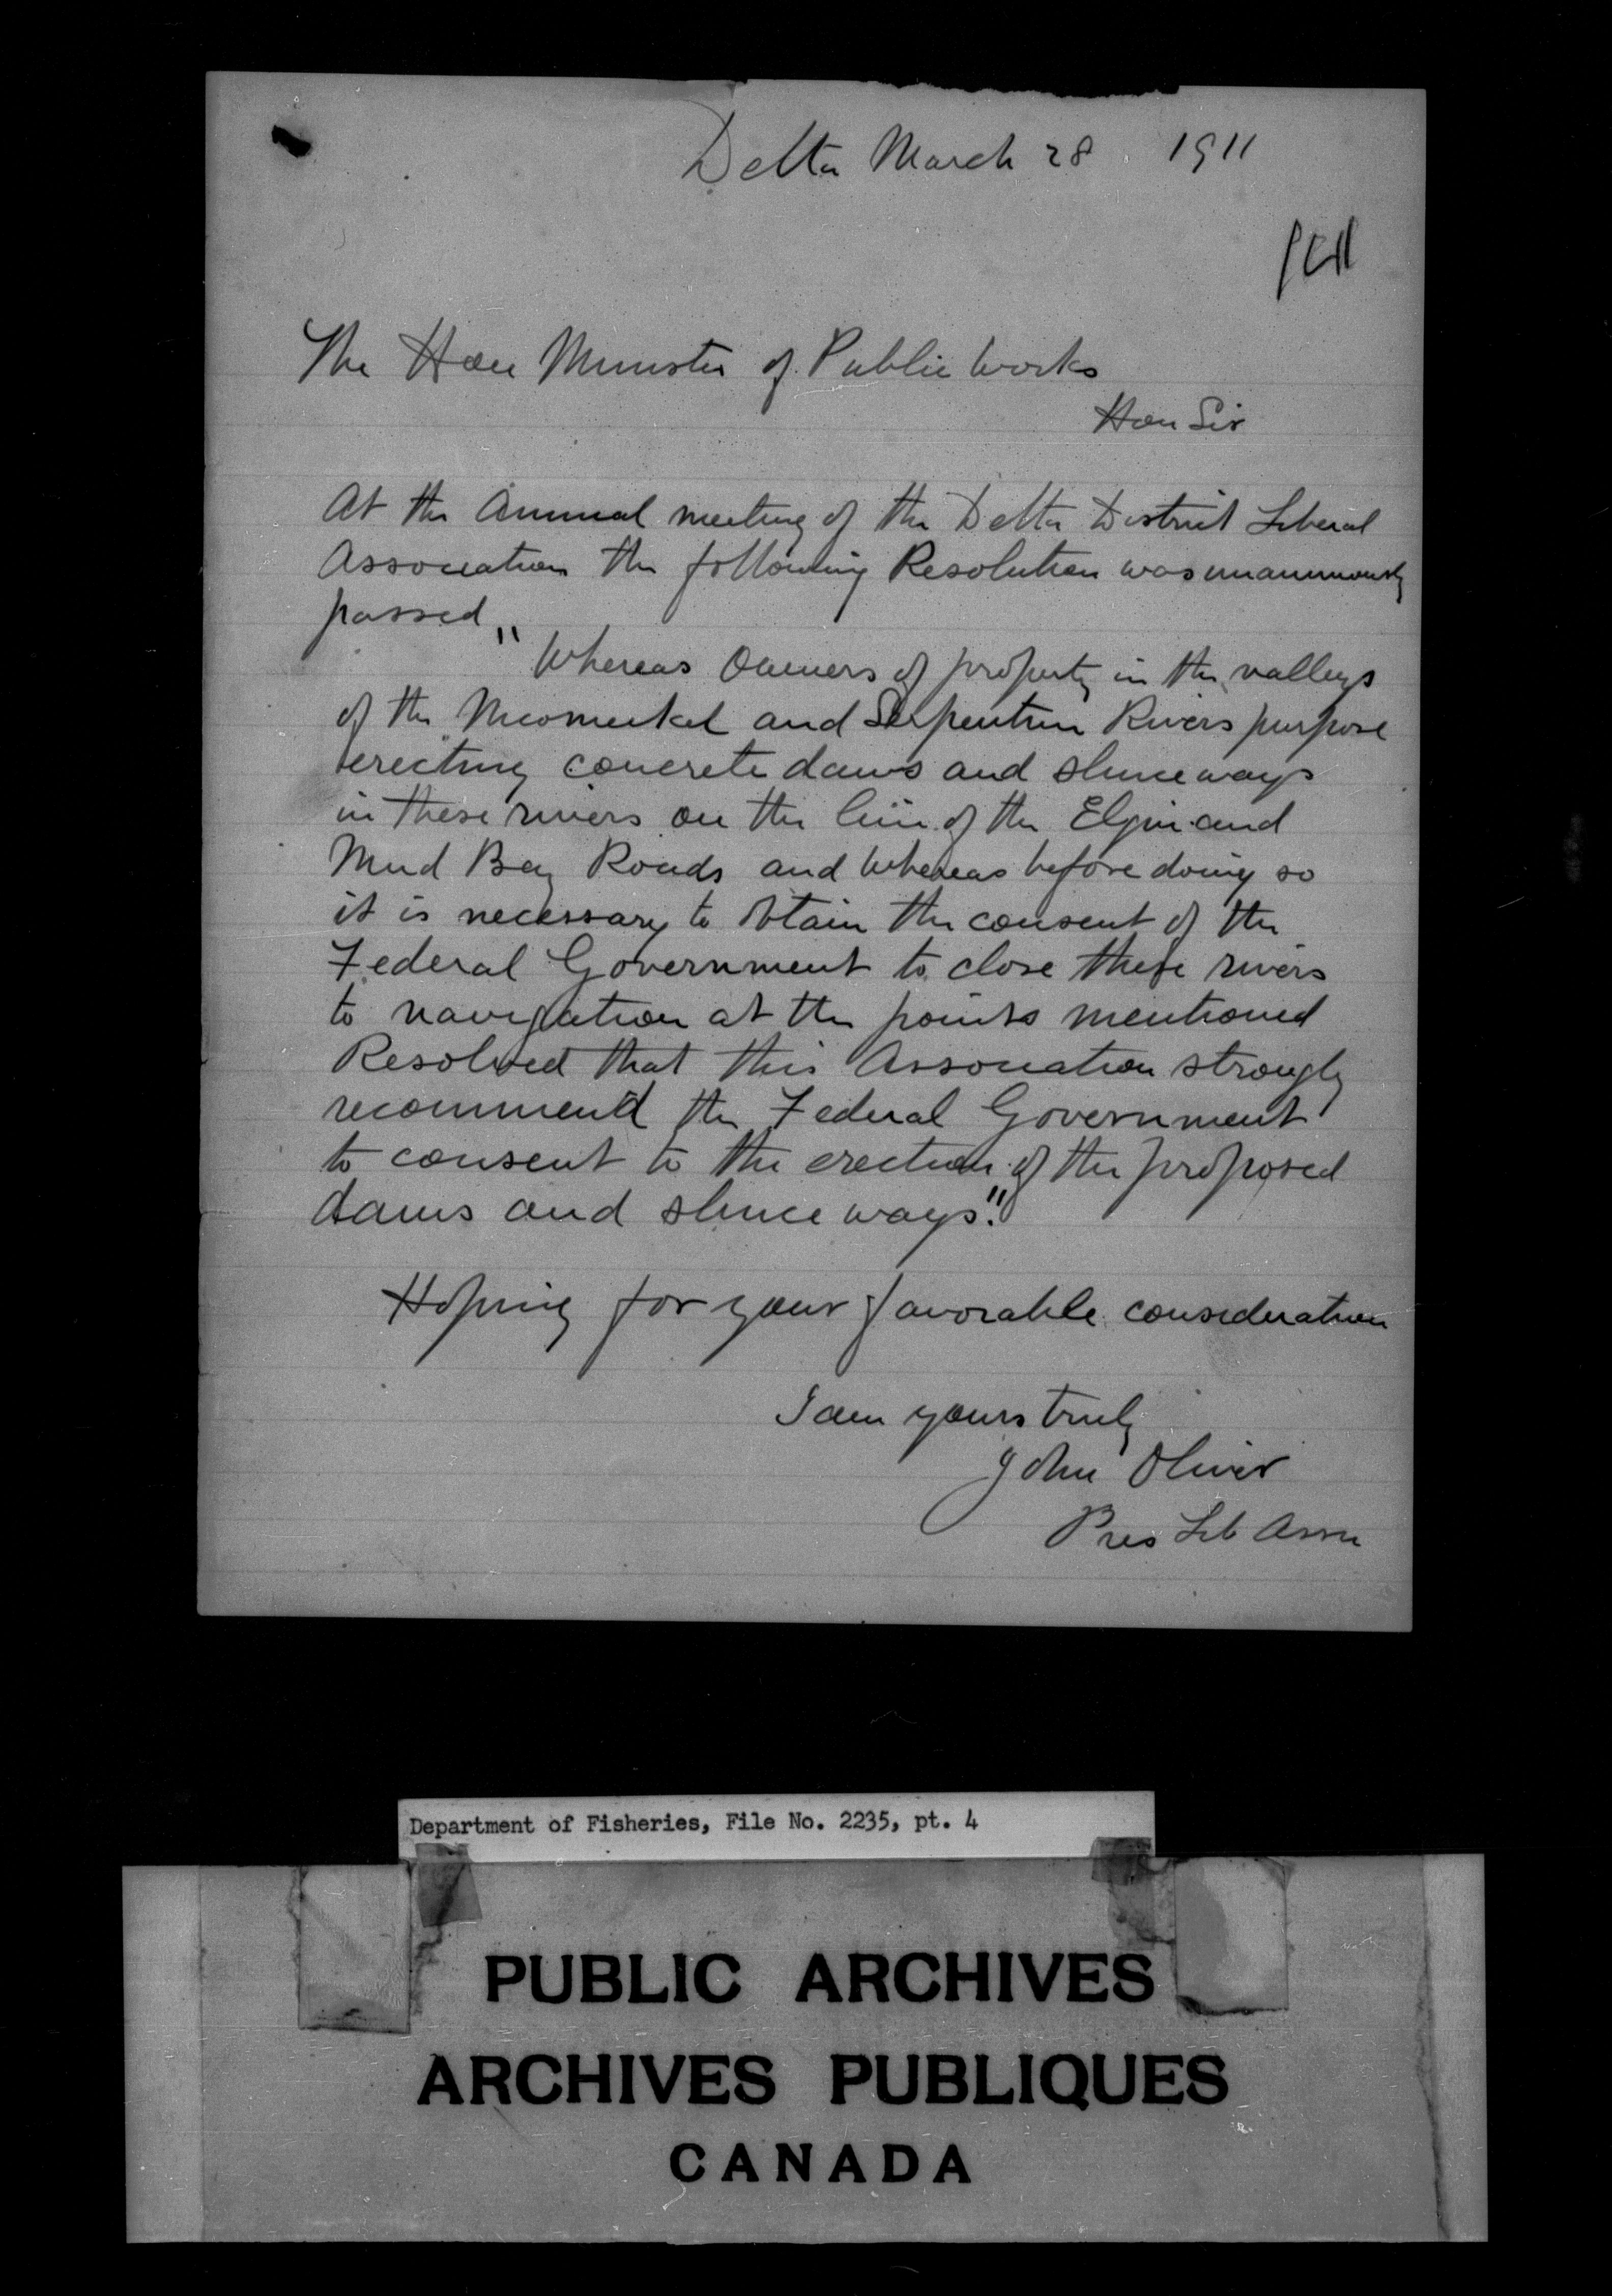 Delta March 28. 1911
The Hon Minister of Public Works
Hon Sir
At the Annual meeting of the Delta District Liberal
Association the following Resolution was unanimously
passed
"Whereas Owners of property in the valleys
of the Nicomeckel and Serpentine Rivers purpose
erecting concrete dams and sluice ways
in these rivers on the line of the Elgin and
Mud Bay Roads and Whereas before doing so
it is necessary to obtain the consent of the
Federal Government to close these rivers
to navigation at the points mentioned
Resolved that this Association strongly
recommend the Federal Government
to consent to the erection of the proposed
dams and sluice ways."
Hoping for your favorable consideration
I am yours truly
John Oliver
Pres Lib Assn
Department of Fisheries, File No. 2235, pt. 4
PUBLIC ARCHIVES
ARCHIVES PUBLIQUES
CANADA